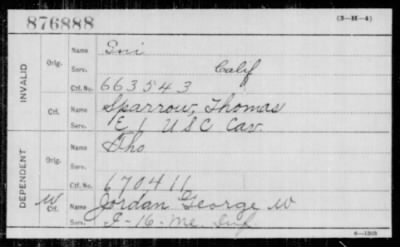 876888 (3-H-4)
INVALID
Orig. Name Ini
Serv. Calif
Ctf. No. 663543
Ctf. Name Sparrow, Thomas
Serv. E 1 USC Cav.
DEPENDENT
Orig. Name Oho
Serv.
Ctf. No. 670411
W Ctf. Name Jordan George W
Serv. I-16-Me. Inf.